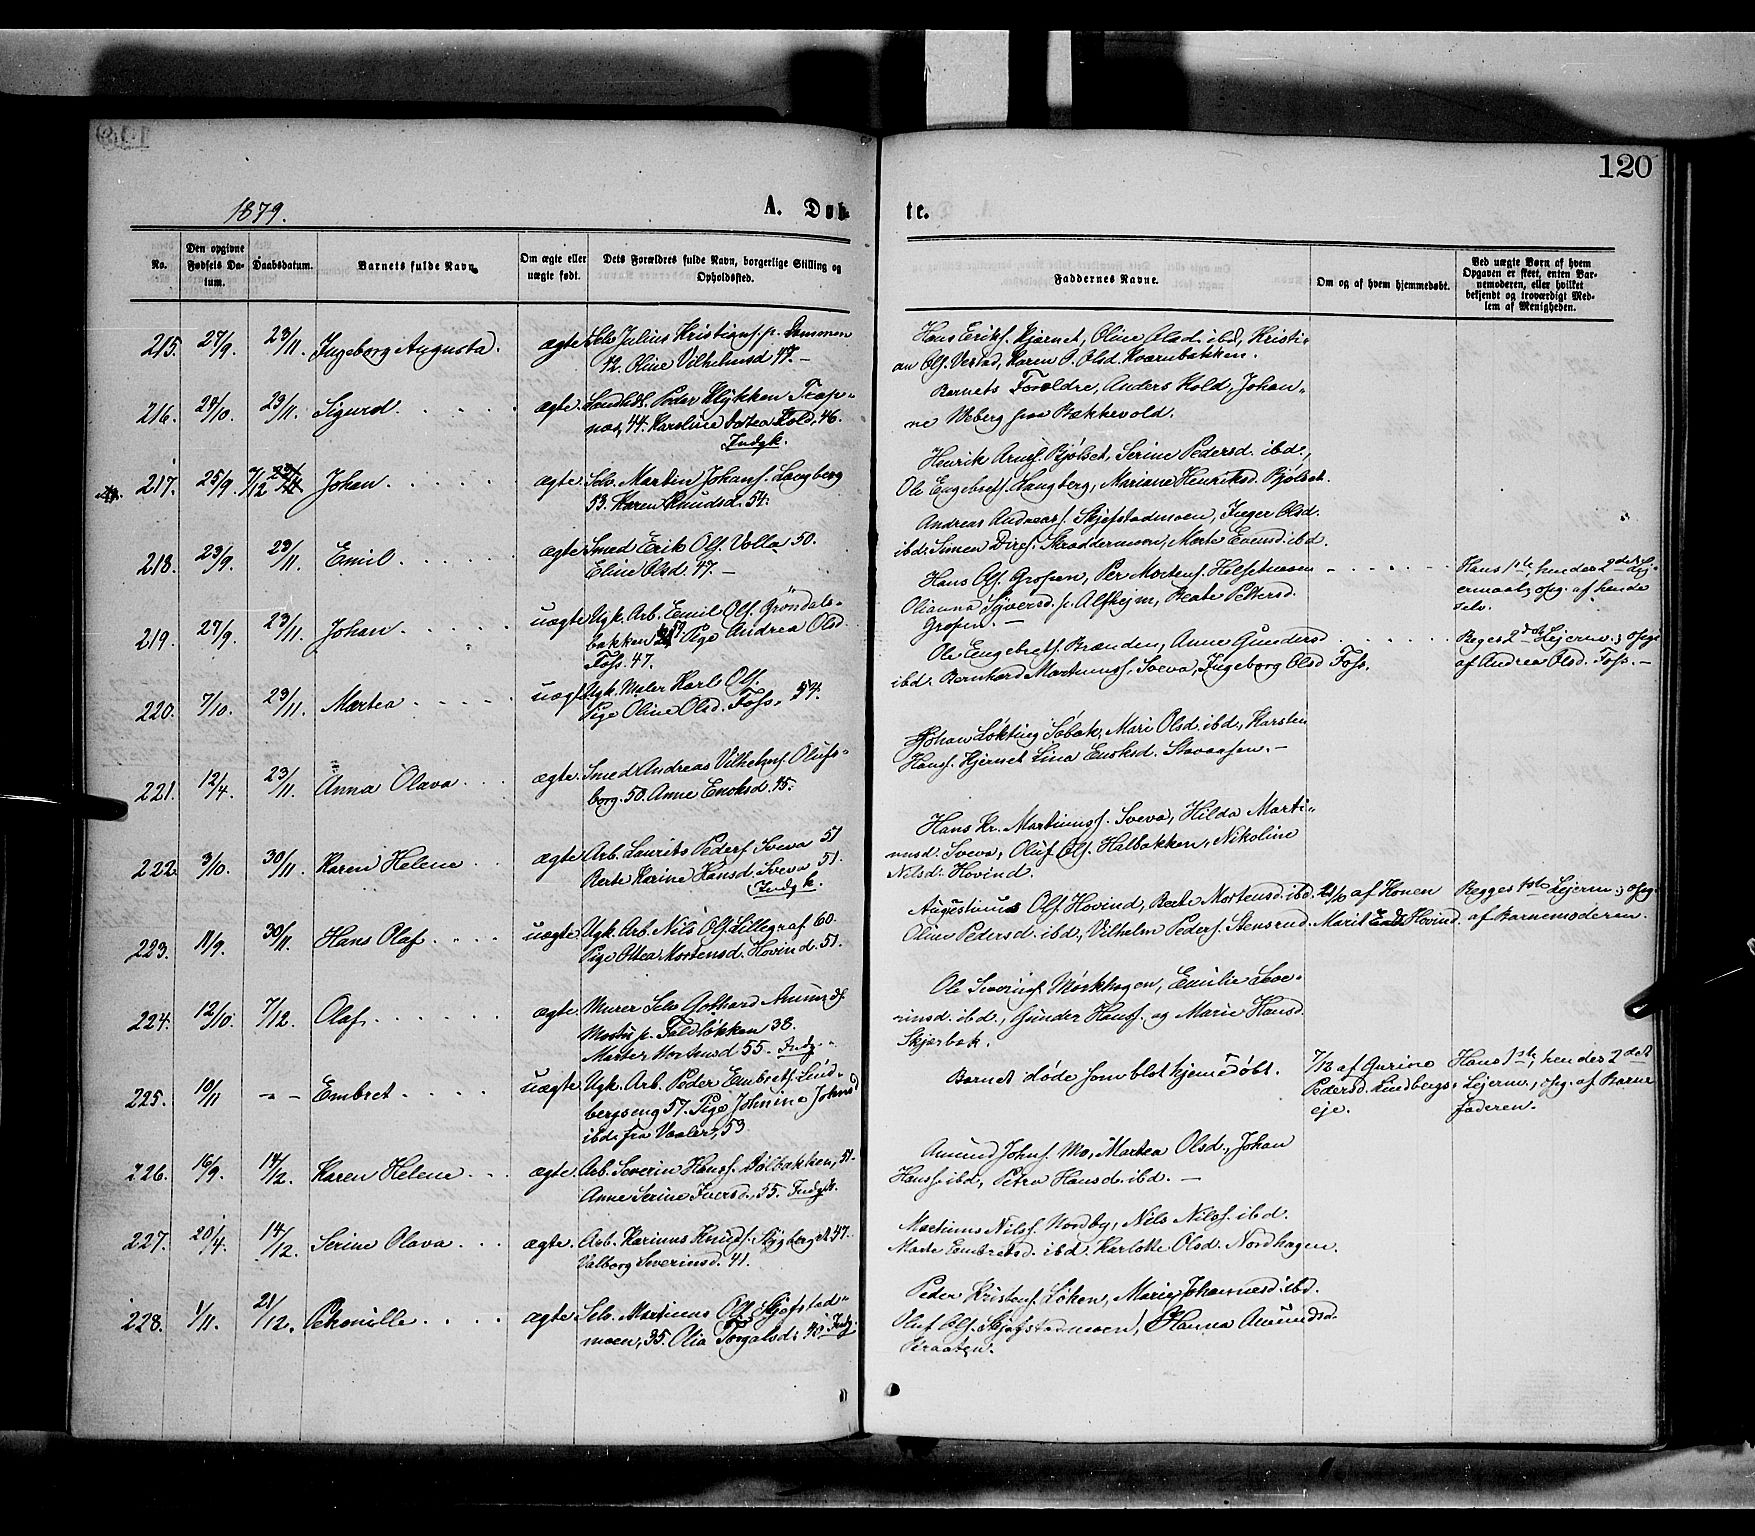 120
1879.
A. Døb-
te.
No.
Den opgivne Fødsels Da-tum.
Daabsdatum.
Barnets fulde Navn.
Om ægte eller uægte født.
Dets Forældres fulde Navn, borgerlige Stilling og Opholdssted.
Faddernes Navne.
Om og af hvem hjemmedøbt.
Ved uægte Børn af hvem
Opgaven er skeet, enten Bar-
nemoderen, eller hvilket
bekjendt og troværdigt Med-
lem af Menigheden.
215. 27/9. 23/11. Ingeborg Augusta. ægte Selv. Julius Kristiansf. p. Dammen
42. Oline Vilhelmsd 47. —
Hans Eriksf. Kjernet, Oline Olsd. ibd, Kristi-
an Olsf. Vestad, Karen O. Olsd. Kvernbakken.
216. 24/10. 23/11. Sigurd ægte. Peder Trap-
næs, 44. Karoline Dortea Kold, 46.
Indgk.
Barnets Forældre, Anders Kold, Johan-
ne Weberg paa Bækkevold.
217. 25/9. 7/12 Johan ægte Selv. Martin Johansf. Langberg
53. Karen Knudsd. 54.
Henrik Arnesf. Bjølset, Serine Pedersd. ibd.,
Ole Engebretsf. Langberg, Mariane Henriksd. Bjølset.
218. 23/9. 23/11. Emil ægte Smed Erik Olsf. Volla 50.
Eline Olsd. 47. —
Andreas Andreasf. Skjefstadmoen, Inger Olsd.
ibd. Simen Skræddermoen, Marte Evensd. ibd.
219. 27/9. 23/11. Johan uægte Ugk. Arb. Emil Olsf. Grøndals-
bakken Pige Andrea Olsd
Foss. 47.
Hans Olsf. Gropen, Per Mortensf. Helsetmoen
Olianna Syversd. p. Alfheim, Beate Pettersd.
Gropen. —
Hans 1ste, hendes 2det Lej-
ermaal; opg. af hende
selv.
220. 7/10. 23/11. Martea uægte Ugk. Maler Karl Olsf.
Pige Oline Olsd. Foss, 54.
Ole Engebretsf. Brænden, Anne Gundersd
ibd. Bernhard Martinusf. Sveva, Ingeborg Olsd Foss.
Beges 2det Lejerm.; opg.
af Andrea Olsd. Foss. —
221. 12/4. 23/11. Anna Olava ægte. Smed Andreas Vilhelmsf. Olufs-
borg. 50. Anne Enoksd. 45.
Johan Løkting Søbak, Mari Olsd. ibd., Karsten
Hansf. Hjernet Lina Enoksd. Stavaasen. —
222. 3/10. 30/11. Karen Helene ægte Arb. Laurits Pedersf. Sveva 51
Berte Karine Hansd. Sveva 51.
Indgk.
Hans Kr. Martinusf. Sveva, Hilda Marti-
nusd. Sveva, Oluf Olsf. Halbakken, Nikoline
Nilsd. Hovind.
223. 11/9. 30/11. Hans Olaf uægte. Ugk. Arb. Nils Olsf. Lillegraf 60.
Pige Oltea Mortensd. Hovind. 51.
Augustinus Olsf. Hovind, Beate Mortensd. ibd.
Oline Pedersd. ibd., Vilhelm Pedersf. Stensrud.
af Konen
Marit Hovind.
Begges 1ste Lejerm.; opg.
af Barnemoderen.
224. 12/10. 7/12. Olaf ægte. Murer Selv Gothard Amundsf
p. Faldløkken 38.
Marter Mortensd 55. Indg.
Ole Severinsf. Mørkhagen, Emilie Seve-
rinsd. ibd., Gunder Hansf. og Marie Hansd.
Skjærbæk.
225. 10/11 -„- Embret uægte Ugk. Arb. Peder Embretsf. Lind-
bergseng 57. Pige Johnine Johnsd
ibd. fra Vaaler, 53
Barnet døde som blot hjemmedøbt.
7/12 af Gurine
Pedersd. Lindbergs-
eje.
Hans 1ste, hendes 2det
Lejerm., opg. af Barne
faderen.
226. 16/9. 14/12. Karen Helene ægte. Arb. Severin Hansf. Dølbakken, 51.
Anne Serine Iversd., 55. Indgk.
Amund Johnsf. Mo, Martea Olsd., Johan
Hansf. ibd, Petra Hansd. ibd. —
227. 20/4. 14/12. Serine Olava ægte. Arb. Karinus Knudsf. Stygberget 47.
Valborg Severinsd. 41.
Martinus Nilsf. Nordby, Nils Nilsf. ibd.
Marte Embretsd. ibd. Karlotte Olsd. Nordhagen.
228. 1/11. 21/12. Petronille ægte Selv. Martinus Olsf. Skjefstad-
moen, 35. Olia Torgalsd. 40. Indg.
Peder Kristensf. Løken, Marie Johannesd. ibd.
Oluf Olsf. Skjefstadmoen, Hanna Amundsd.
Braaten.